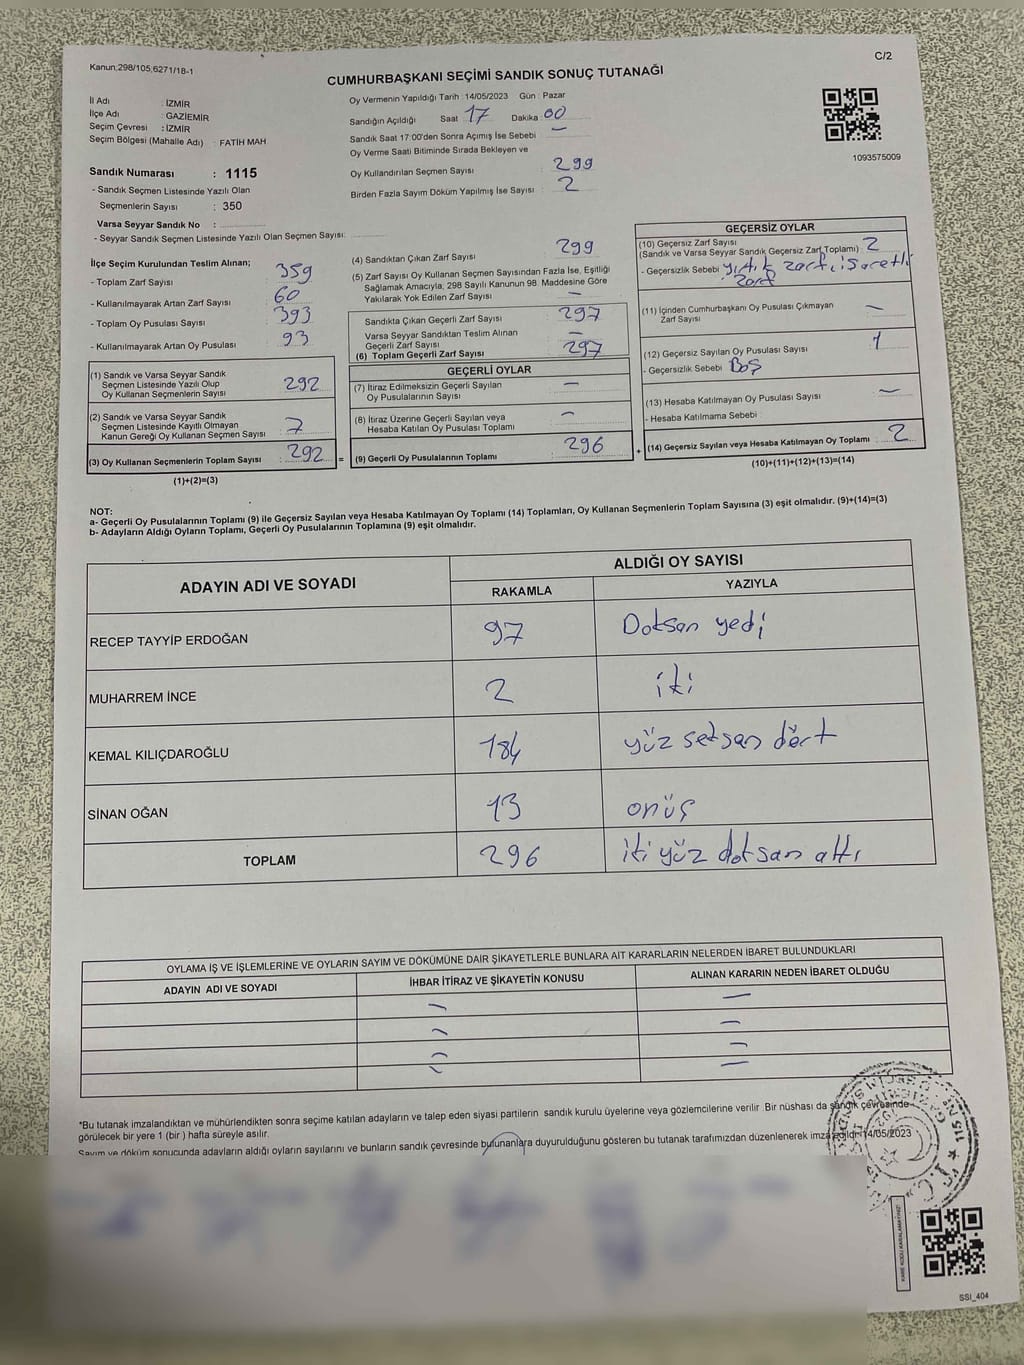 Kanun;298/105;6271/18-1
C/2
CUMHURBAŞKANI SEÇİMİ SANDIK SONUÇ TUTANAĞI
İl Adı : İZMİR
İlçe Adı : GAZİEMİR
Seçim Çevresi : İZMİR
Seçim Bölgesi (Mahalle Adı) : FATİH MAH
Sandık Numarası : 1115
- Sandık Seçmen Listesinde Yazılı Olan
Seçmenlerin Sayısı : 350
Varsa Seyyar Sandık No :
- Seyyar Sandık Seçmen Listesinde Yazılı Olan Seçmen Sayısı:
Oy Vermenin Yapıldığı Tarih : 14/05/2023 Gün : Pazar
Sandığın Açıldığı Saat 17 Dakika 00
Sandık Saat 17:00'den Sonra Açımış İse Sebebi : —
Oy Verme Saati Bitiminde Sırada Bekleyen ve
Oy Kullandırılan Seçmen Sayısı : 299
Birden Fazla Sayım Döküm Yapılmış İse Sayısı : 2
1093575009
İlçe Seçim Kurulundan Teslim Alınan;
- Toplam Zarf Sayısı : 359
- Kullanılmayarak Artan Zarf Sayısı : 60
- Toplam Oy Pusulası Sayısı : 393
- Kullanılmayarak Artan Oy Pusulası : 93
(1) Sandık ve Varsa Seyyar Sandık
Seçmen Listesinde Yazılı Olup
Oy Kullanan Seçmenlerin Sayısı : 292
(2) Sandık ve Varsa Seyyar Sandık
Seçmen Listesinde Kayıtlı Olmayan
Kanun Gereği Oy Kullanan Seçmen Sayısı : 7
(3) Oy Kullanan Seçmenlerin Toplam Sayısı : 292 =
(1)+(2)=(3)
(4) Sandıktan Çıkan Zarf Sayısı : 299
(5) Zarf Sayısı Oy Kullanan Seçmen Sayısından Fazla İse, Eşitliği
Sağlamak Amacıyla; 298 Sayılı Kanunun 98. Maddesine Göre
Yakılarak Yok Edilen Zarf Sayısı : —
Sandıkta Çıkan Geçerli Zarf Sayısı : 297
Varsa Seyyar Sandıktan Teslim Alınan
Geçerli Zarf Sayısı : —
(6) Toplam Geçerli Zarf Sayısı : 297
GEÇERLİ OYLAR
(7) İtiraz Edilmeksizin Geçerli Sayılan
Oy Pusulalarının Sayısı : —
(8) İtiraz Üzerine Geçerli Sayılan veya
Hesaba Katılan Oy Pusulası Toplamı : —
(9) Geçerli Oy Pusulalarının Toplamı : 296 +
GEÇERSİZ OYLAR
(10) Geçersiz Zarf Sayısı
(Sandık ve Varsa Seyyar Sandık Geçersiz Zarf Toplamı) : 2
- Geçersizlik Sebebi : yırtık zarf, işaretli
zarf
(11) İçinden Cumhurbaşkanı Oy Pusulası Çıkmayan
Zarf Sayısı : —
(12) Geçersiz Sayılan Oy Pusulası Sayısı : 1
- Geçersizlik Sebebi : Boş
(13) Hesaba Katılmayan Oy Pusulası Sayısı : —
- Hesaba Katılmama Sebebi :
(14) Geçersiz Sayılan veya Hesaba Katılmayan Oy Toplamı : 2
(10)+(11)+(12)+(13)=(14)
NOT:
a- Geçerli Oy Pusulalarının Toplamı (9) ile Geçersiz Sayılan veya Hesaba Katılmayan Oy Toplamı (14) Toplamları, Oy Kullanan Seçmenlerin Toplam Sayısına (3) eşit olmalıdır. (9)+(14)=(3)
b- Adayların Aldığı Oyların Toplamı, Geçerli Oy Pusulalarının Toplamına (9) eşit olmalıdır.
ADAYIN ADI VE SOYADI
ALDIĞI OY SAYISI
RAKAMLA YAZIYLA
RECEP TAYYİP ERDOĞAN 97 Doksan yedi
MUHARREM İNCE 2 iki
KEMAL KILIÇDAROĞLU 184 yüz seksen dört
SİNAN OĞAN 13 onüç
TOPLAM 296 iki yüz doksan altı
OYLAMA İŞ VE İŞLEMLERİNE VE OYLARIN SAYIM VE DÖKÜMÜNE DAİR ŞİKAYETLERLE BUNLARA AİT KARARLARIN NELERDEN İBARET BULUNDUKLARI
ADAYIN ADI VE SOYADI İHBAR İTİRAZ VE ŞİKAYETİN KONUSU ALINAN KARARIN NEDEN İBARET OLDUĞU
— —
— —
— —
— —
*Bu tutanak imzalandıktan ve mühürlendikten sonra seçime katılan adayların ve talep eden siyasi partilerin sandık kurulu üyelerine veya gözlemcilerine verilir .Bir nüshası da sandık çevresinde
görülecek bir yere 1 (bir ) hafta süreyle asılır.
Sayım ve döküm sonucunda adayların aldığı oyların sayılarını ve bunların sandık çevresinde bulunanlara duyurulduğunu gösteren bu tutanak tarafımızdan düzenlenerek imzalandı. 14/05/2023
T.C.
KARE KODU KARALAMAYINIZ!
SSI_404